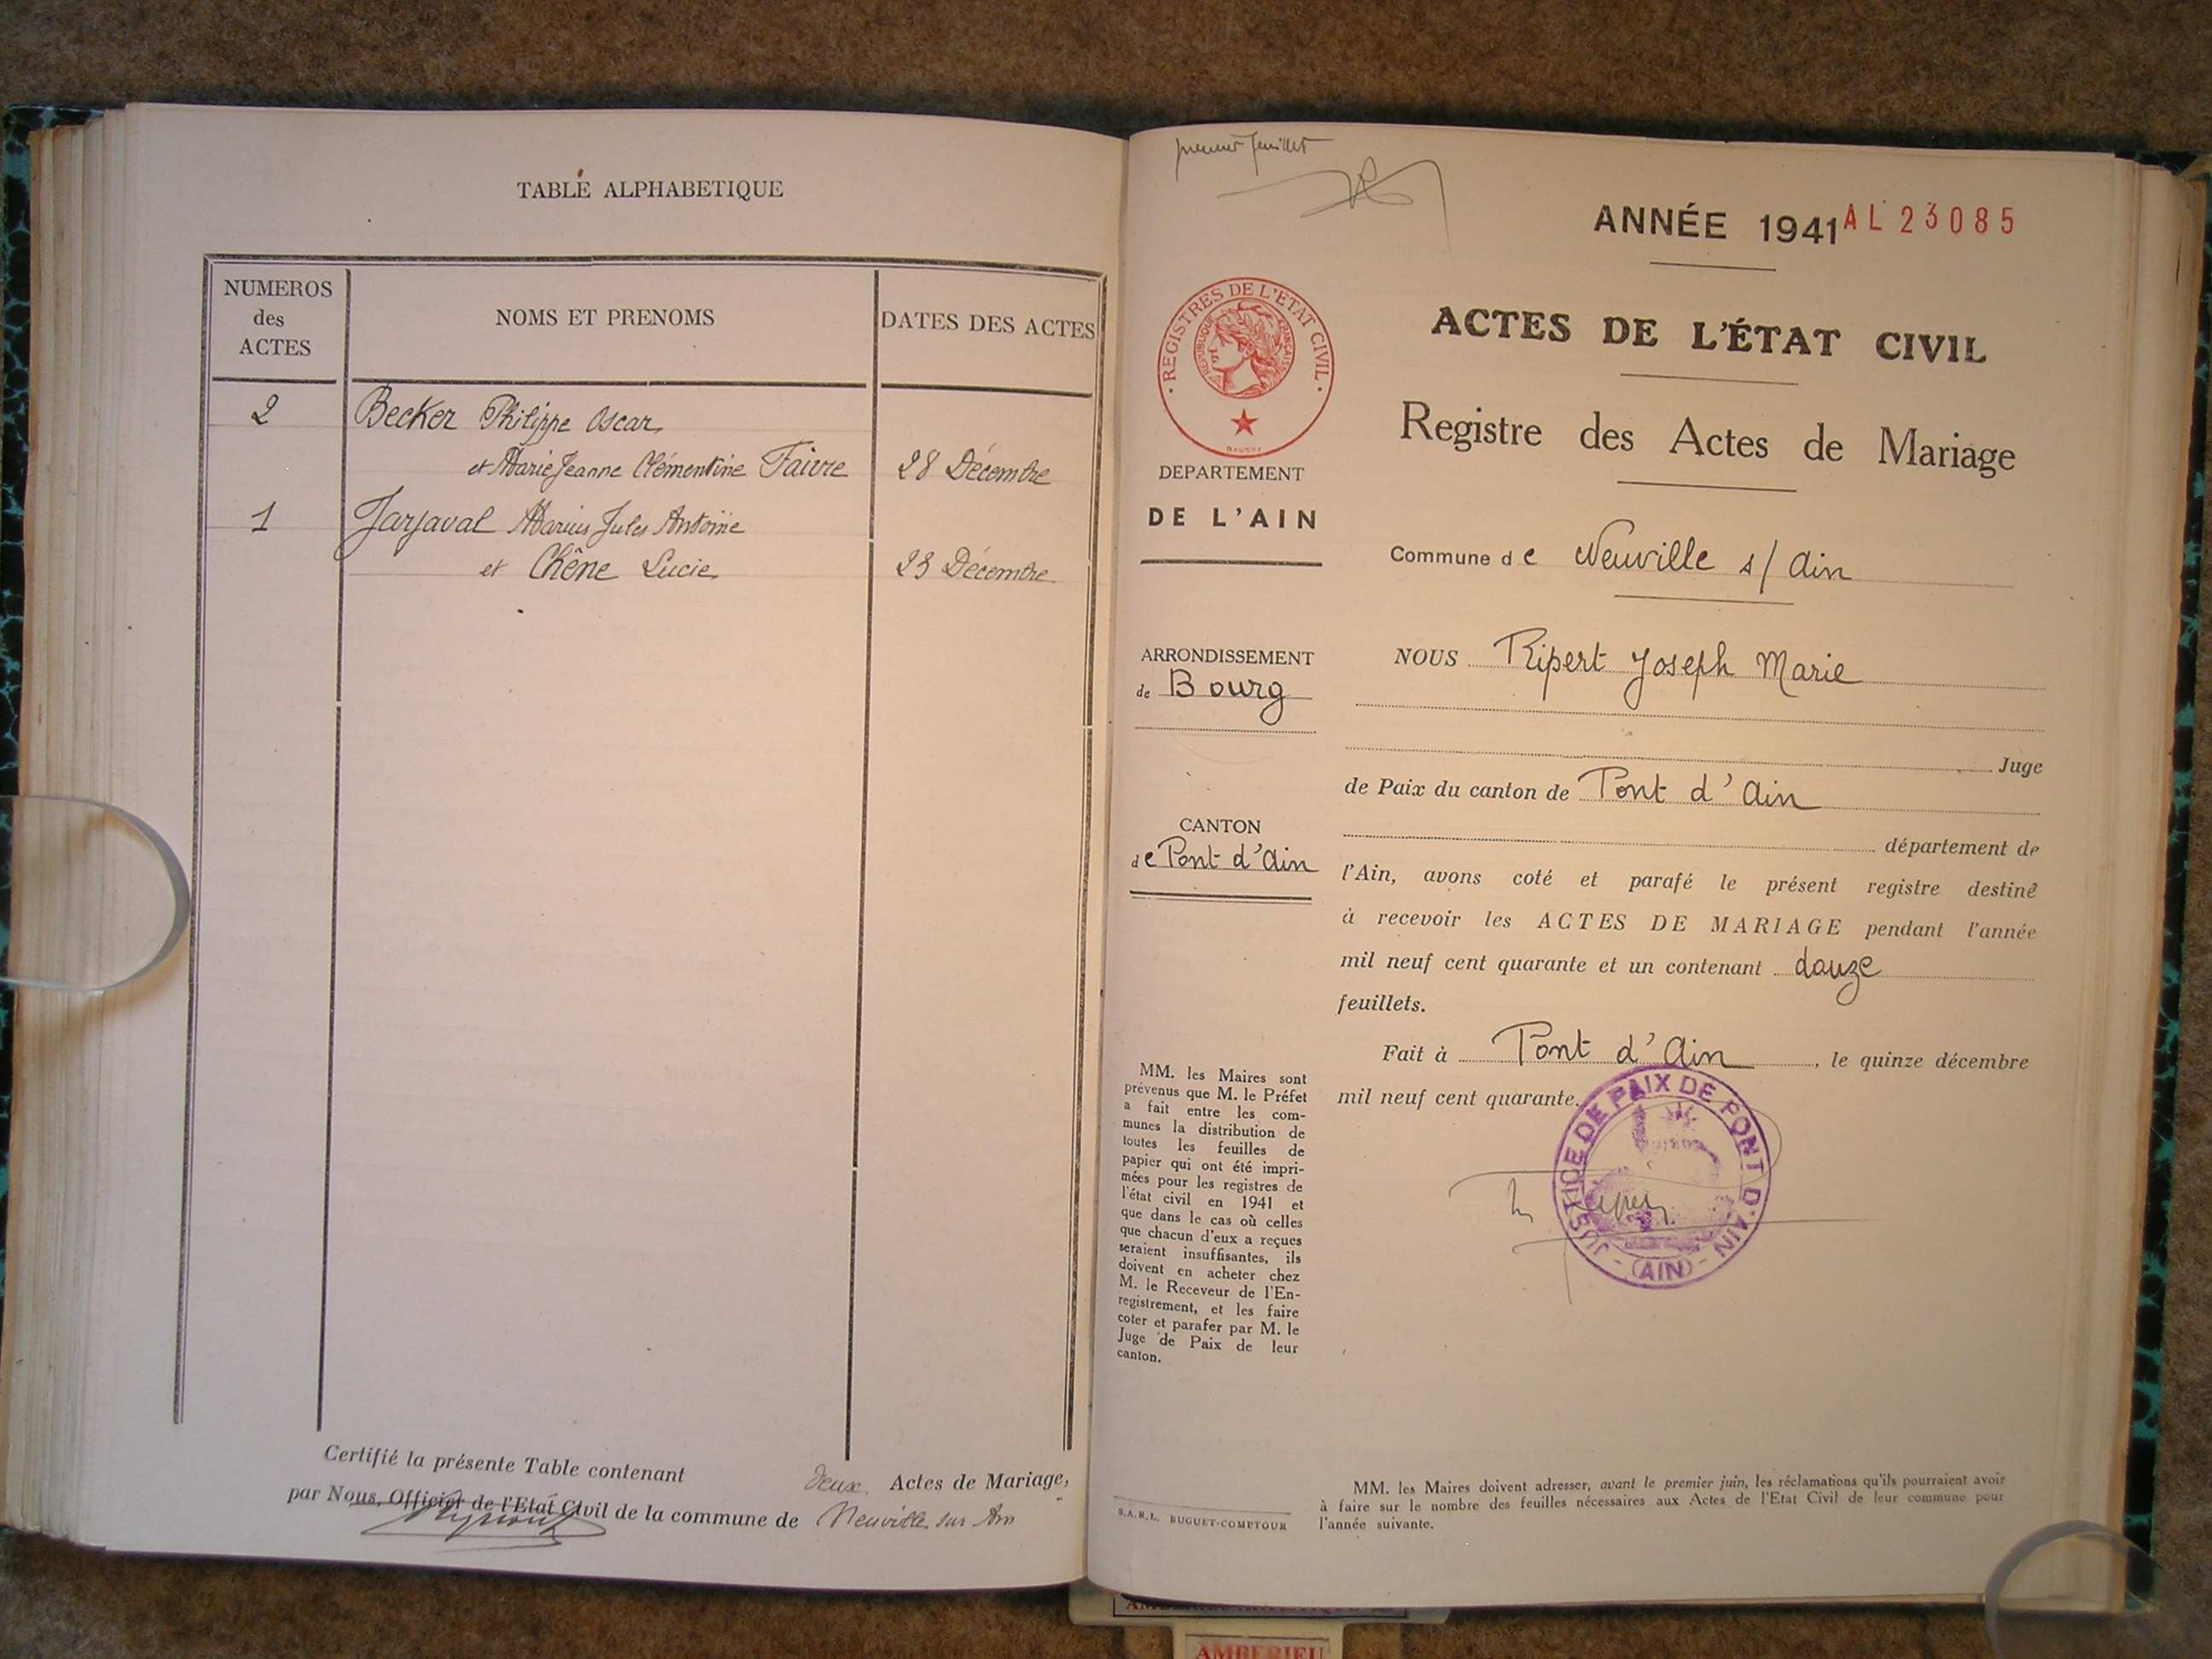 TABLE ALPHABETIQUE
NUMEROS
des
ACTES
NOMS ET PRENOMS
DATES DES ACTES
2
Becker Philippe Oscar
et Marie Jeanne Clémentine Faivre
28 Décembre
1
Jarjaval Marius Jules Antoine
et Chêne Lucie
23 Décembre
Certifié la présente Table contenant deux Actes de Mariage,
par Nous, Officier de l'Etat Civil de la commune de Neuville sur Ain
premier feuillet
ANNÉE 1941 AL 23085
REGISTRES DE L'ETAT CIVIL
REPUBLIQUE FRANÇAISE
DEPARTEMENT
DE L'AIN
ARRONDISSEMENT
de Bourg
CANTON
de Pont d'Ain
MM. les Maires sont
prévenus que M. le Préfet
a fait entre les com-
munes la distribution de
toutes les feuilles de
papier qui ont été impri-
mées pour les registres de
l'état civil en 1941 et
que dans le cas où celles
que chacun d'eux a reçues
seraient insuffisantes, ils
doivent en acheter chez
M. le Receveur de l'En-
registrement, et les faire
coter et parafer par M. le
Juge de Paix de leur
canton.
S.A.R.L. BUGUET-COMPTOUR
ACTES DE L'ÉTAT CIVIL
Registre des Actes de Mariage
Commune de Neuville s/ Ain
NOUS Ripert Joseph Marie
Juge
de Paix du canton de Pont d'Ain
département de
l'Ain, avons coté et parafé le présent registre destiné
à recevoir les ACTES DE MARIAGE pendant l'année
mil neuf cent quarante et un contenant douze
feuillets.
Fait à Pont d'Ain, le quinze décembre
mil neuf cent quarante.
JUSTICE DE PAIX DE PONT D'AIN
(AIN)
MM. les Maires doivent adresser, avant le premier juin, les réclamations qu'ils pourraient avoir
à faire sur le nombre des feuilles nécessaires aux Actes de l'Etat Civil de leur commune pour
l'année suivante.
AMBERIEU